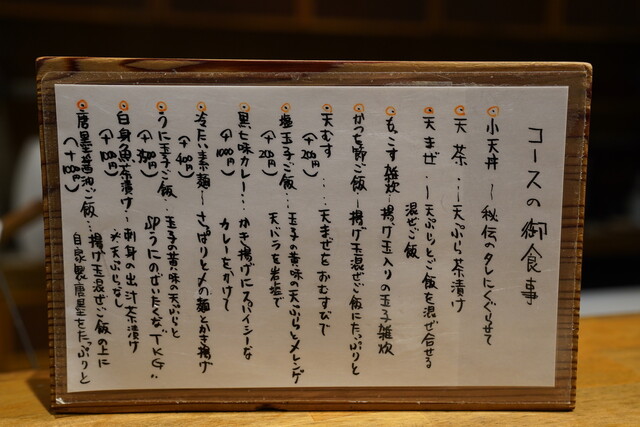 コースの御食事
小天丼 〜 秘伝のタレにくぐらせて
天茶 … 天ぷら茶漬け
天まぜ … 天ぷらとご飯を混ぜ合せる
混ぜご飯
たっこす雑炊 … 揚げ玉入りの玉子雑炊
かつを節ご飯 … 揚げ玉混ぜご飯にたっぷりと
天むす … 天まぜをおむすびで
(+200円)
塩玉子ご飯 … 玉子の黄味の天ぷらとメレンゲ
(+200円)
天バラを岩塩で
黒七味カレー … かき揚げにスパイシーな
(+1000円)
カレーをかけて
冷たい素麺 〜 さっぱりと〆の麺とかき揚げ
(+400円)
うに玉子ご飯 … 玉子の黄味の天ぷらと
SPうにのぜいたくな"TKG"
白身魚茶漬け … 刺身の出汁茶漬け
(+100円)
※天ぷらなし
唐墨醤油ご飯 … 揚げ玉混ぜご飯の上に
自家製唐墨をたっぷりと